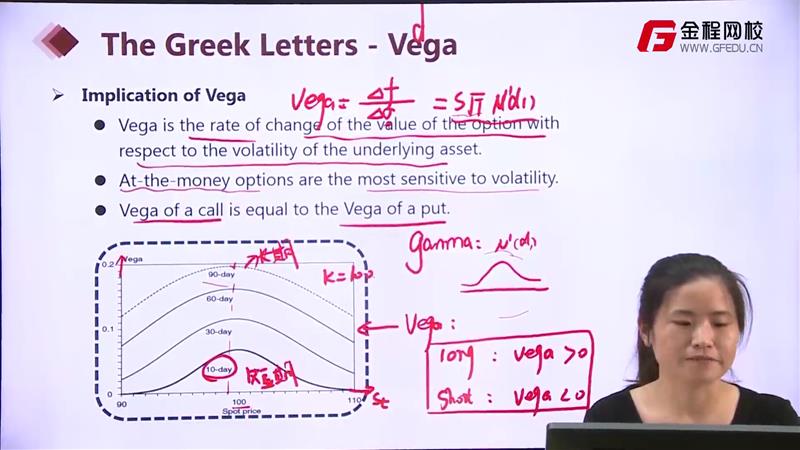 d
The Greek Letters - Vega
金程网校
WWW.GFEDU.CN
Implication of Vega
Vega = Δf/Δσ = S√T N'(d₁)
Vega is the rate of change of the value of the option with
respect to the volatility of the underlying asset.
At-the-money options are the most sensitive to volatility.
Vega of a call is equal to the Vega of a put.
gamma: N'(d₁)
Vega
0.2
长期
K=100
90-day
60-day
0.1
30-day
10-day
0
90
100
110
Spot price
St
Vega:
long : vega >0
short : vega <0